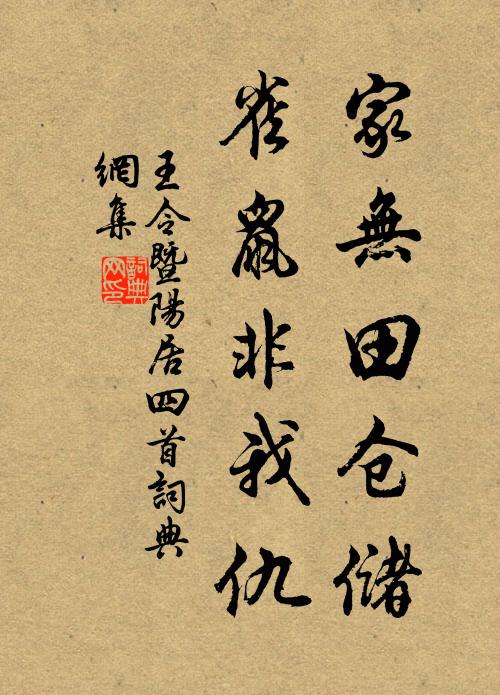 家無田仓儲
雀鼠非我仇
王令暨陽居四首詞典
網集
詞典
网印